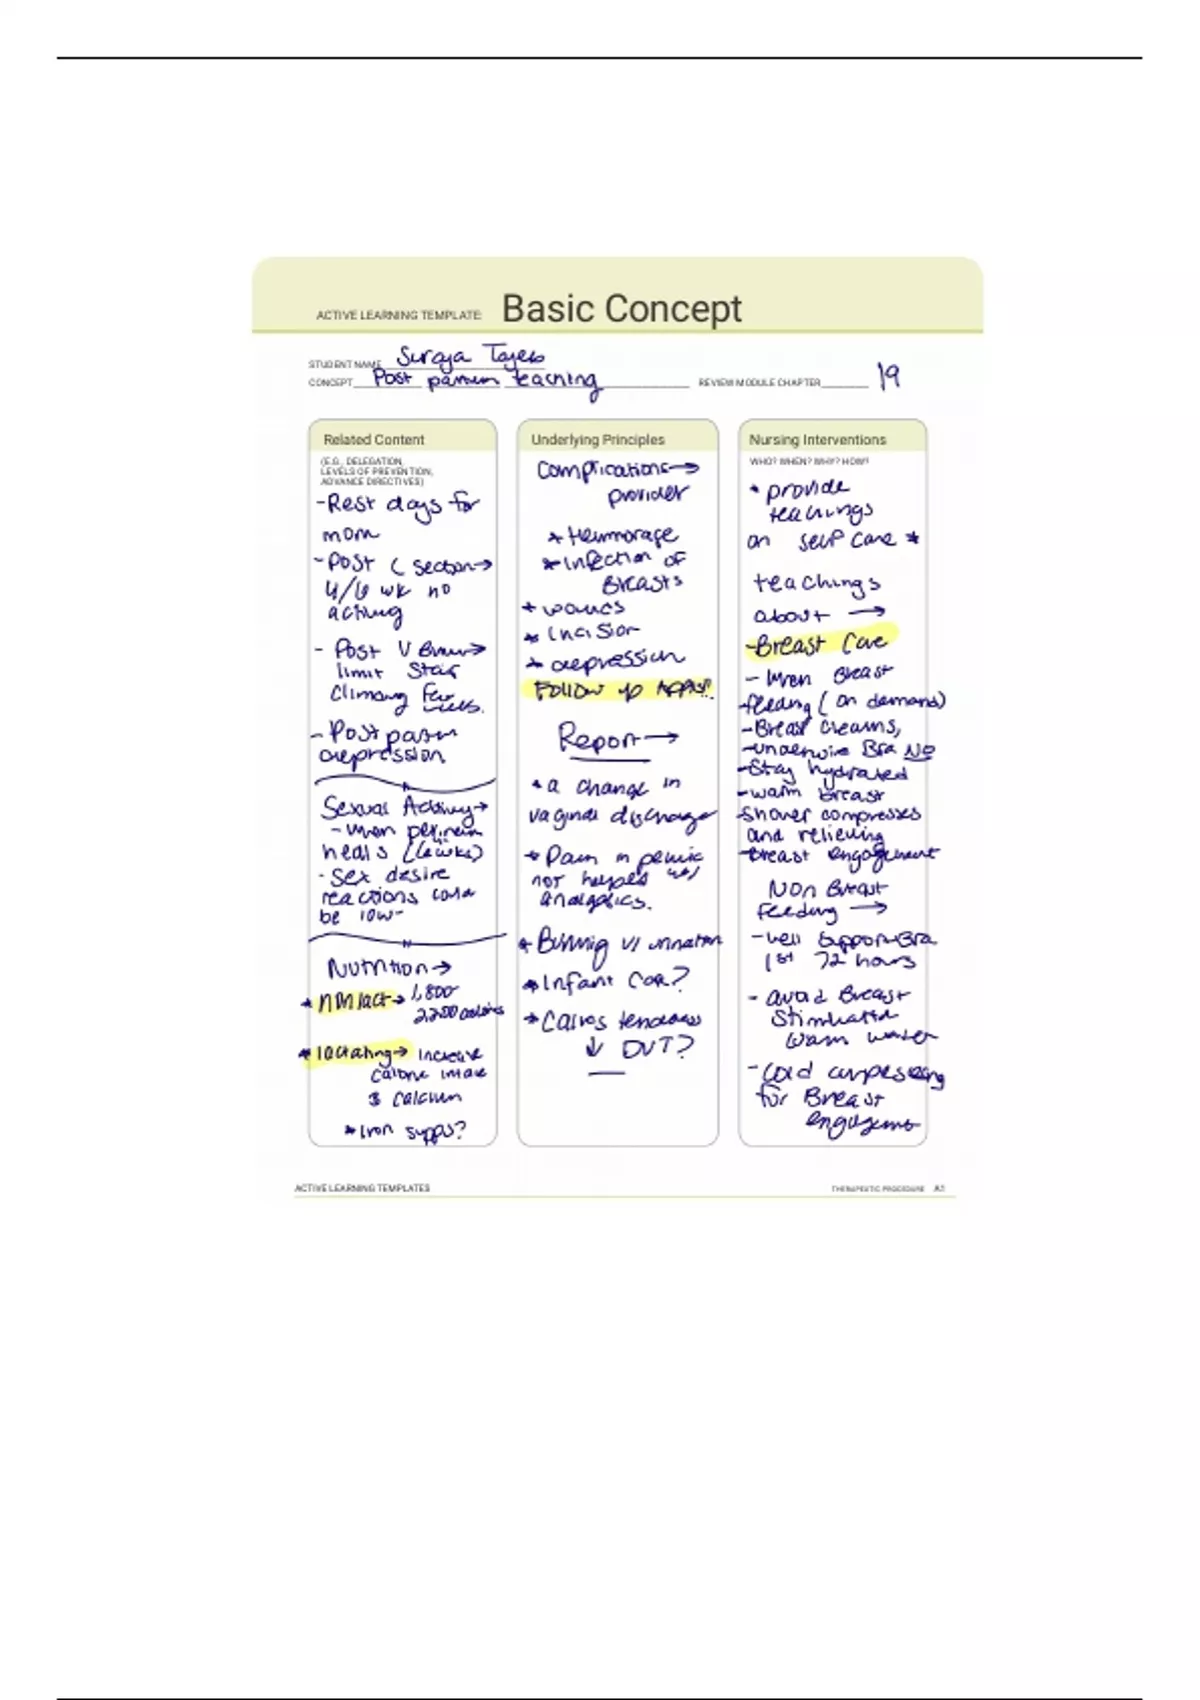 ACTIVE LEARNING TEMPLATE: Basic Concept
STUDENT NAME Suraya Tayeb
CONCEPT Post partum teaching REVIEW MODULE CHAPTER 19
Related Content
(E.G., DELEGATION,
LEVELS OF PREVENTION,
ADVANCE DIRECTIVES)
- Rest days for
mom
- Post C section →
4/6 wk no
acting
- Post V →
limit stair
climbing few
weeks.
- Post partum
depression
Sexual Activity →
- when perineum
heals (6 wks)
- sex desire
reactions could
be low
Nutrition →
* nonlact → 1,800
2,200 calories
* lactating → increase
calorie intake
& calcium
* Iron supps?
Underlying Principles
Complications →
provider
* Hemorrage
* infection of
Breasts
*
* incision
* depression
Follow up Appts!!
Report →
* a change in
vaginal discharge
* Pain in pelvic
not helped w/
analgetics.
* Burning w/ urination
* Infant Car?
* Calves tenderness
↓ DVT?
Nursing Interventions
WHO? WHEN? WHY? HOW?
* provide
teachings
on self care *
teachings
about →
- Breast Care
- when Breast
- feeding (on demand)
- Breast creams,
- underwire Bra NO
- Stay hydrated
- warm breast
shower compresses
and relieving
- Breast engagement
NON Breast
feeding →
- well support Bra
1st 72 hours
- avoid Breast
Stimulation
warm water
- cold compressing
for Breast
engagement
ACTIVE LEARNING TEMPLATES THERAPEUTIC PROCEDURE A1